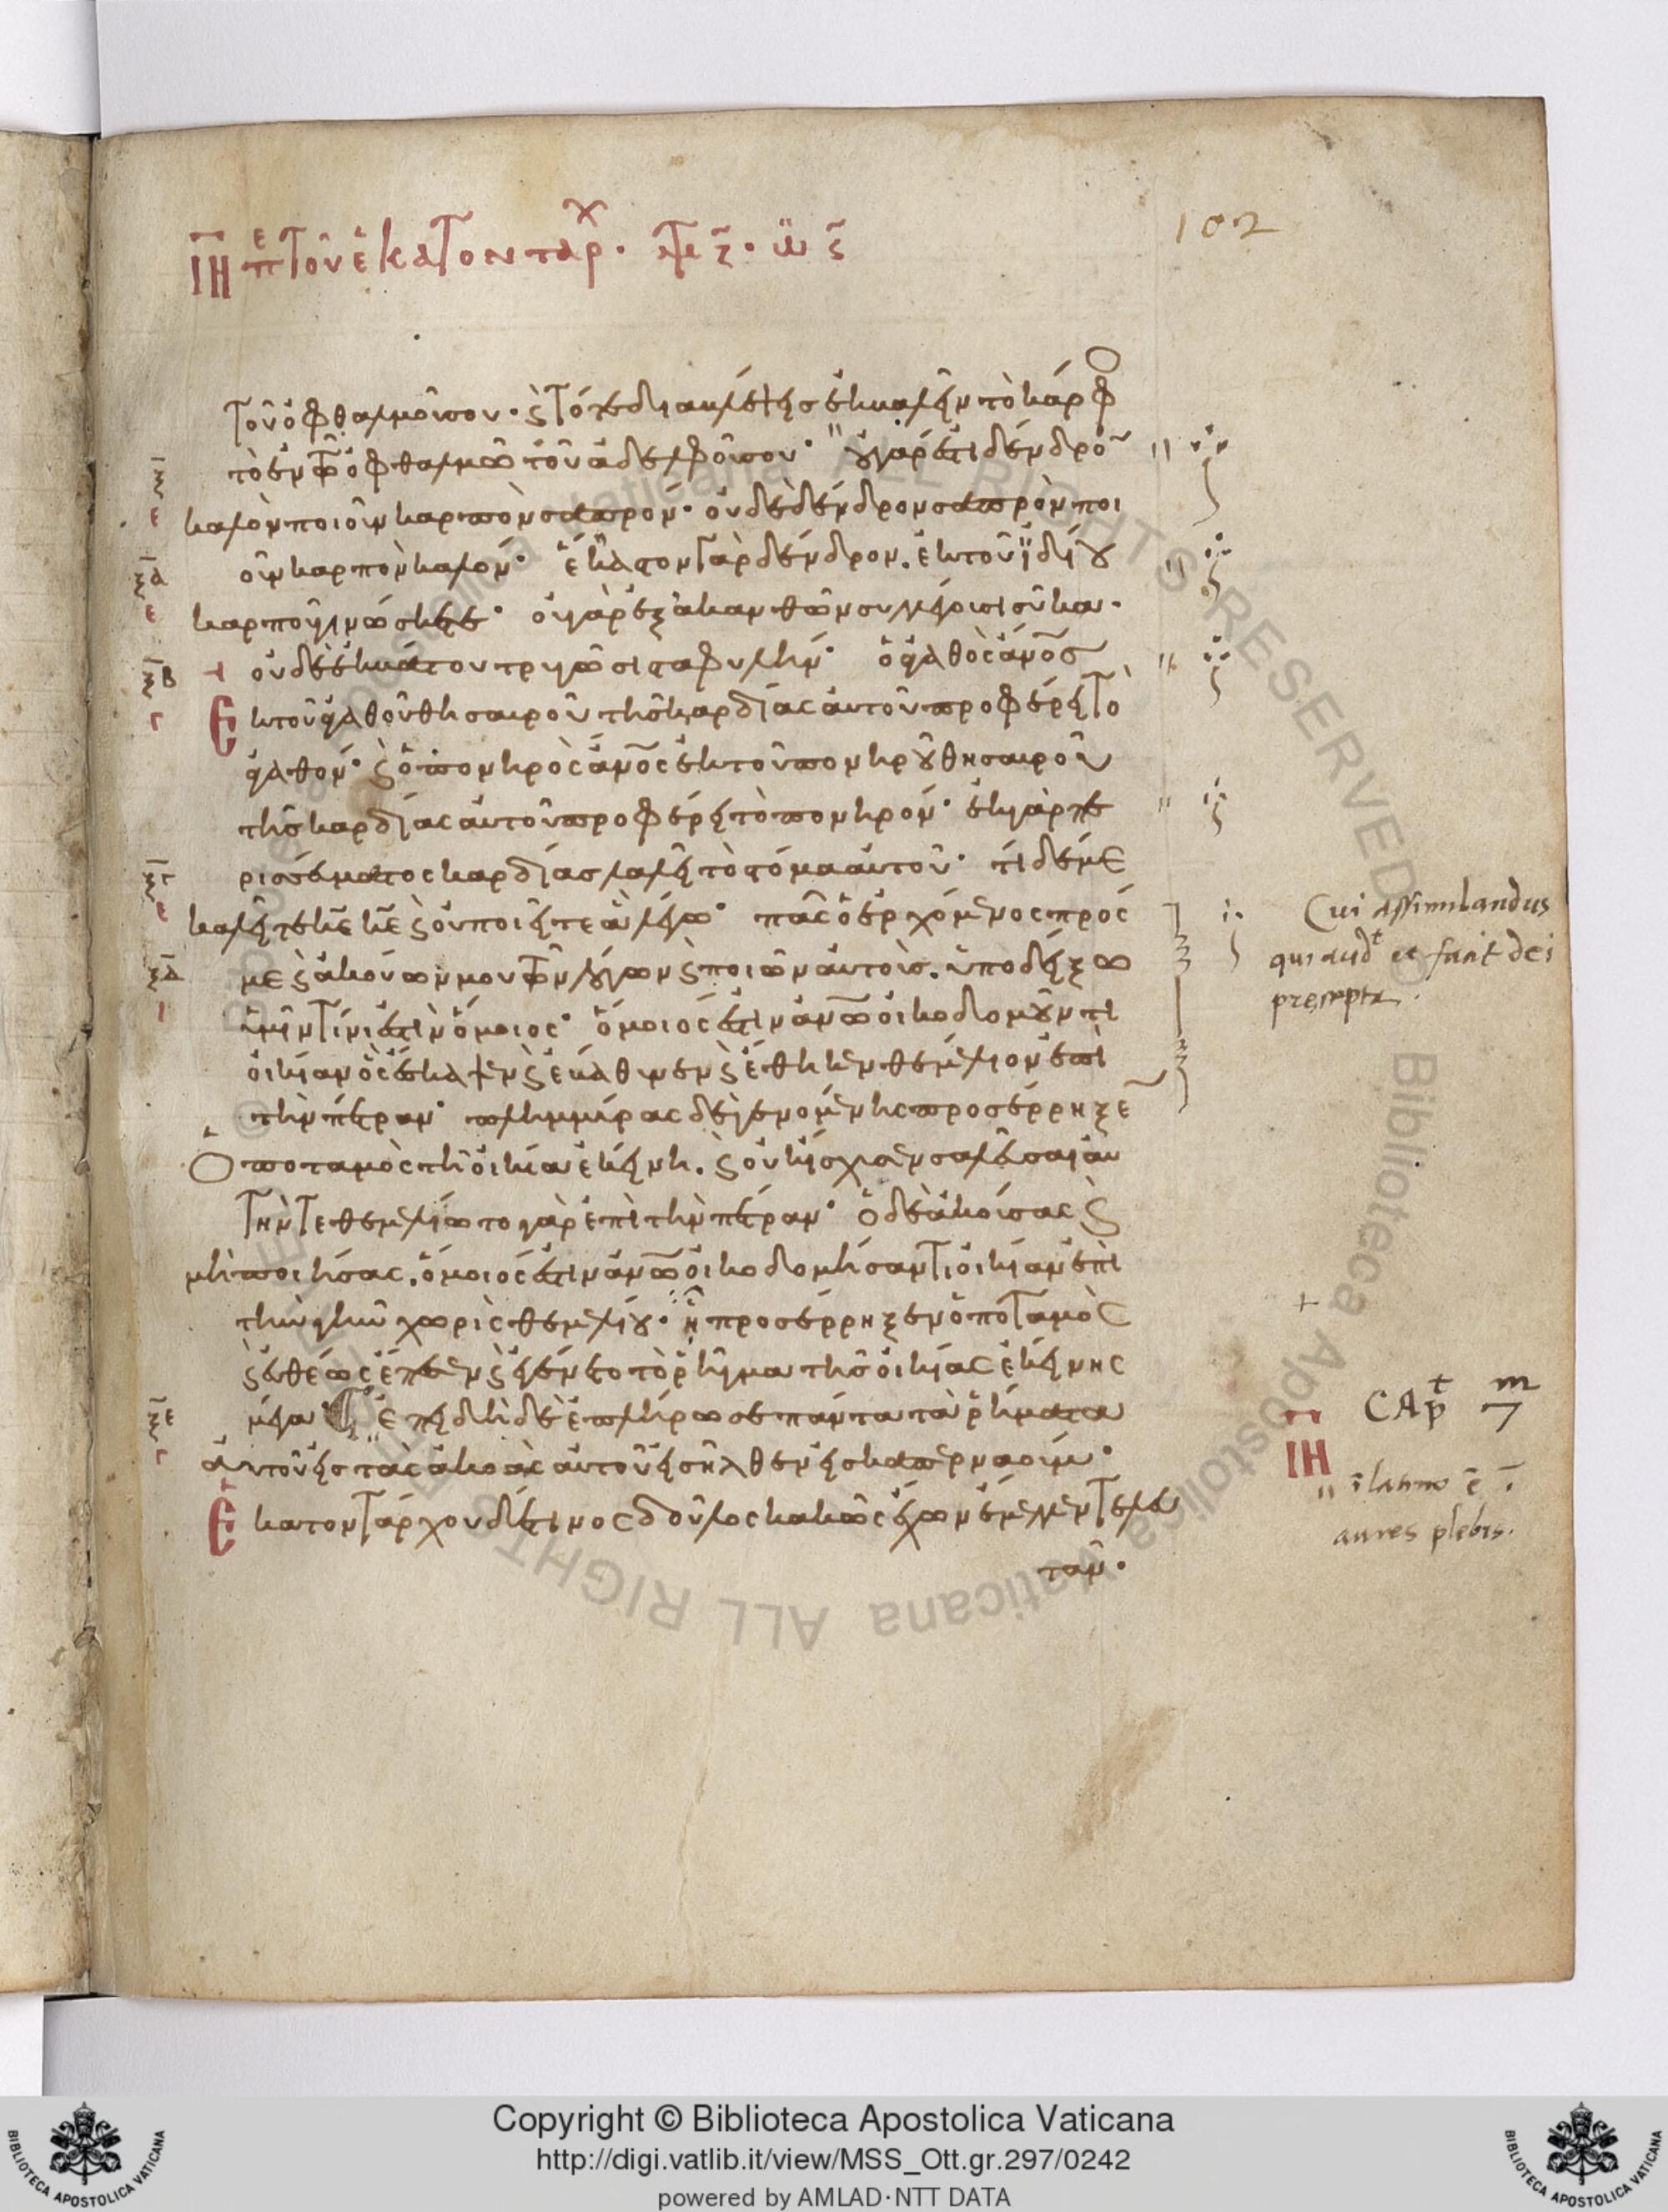 ΙΗ πε τοῦ ἑκατοντάρχ·
102
τοῦ ὀφθαλμοῦ σου· ϗ τότε διαβλέψεις ἐκβαλεῖν τὸ κάρφο
τὸ ἐν τῷ ὀφθαλμῷ τοῦ ἀδελφοῦ σου· οὐ γάρ ἐστι δένδρον
καλὸν ποιοῦν καρπὸν σαπρόν· οὐδὲ δένδρον σαπρὸν ποι
οῦν καρπὸν καλόν· ἕκαστον γὰρ δένδρον ἐκ τοῦ ἰδίου
καρποῦ γινώσκεται· οὐ γὰρ ἐξ ἀκανθῶν συλλέγουσι σῦκα·
οὐδὲ ἐκ βάτου τρυγῶσι σταφυλήν· ὁ ἀγαθὸς ἄνος
Ἐκ τοῦ ἀγαθοῦ θησαυροῦ τῆς καρδίας αὐτοῦ προφέρει τὸ
ἀγαθόν· ϗ ὁ πονηρὸς ἄνος ἐκ τοῦ πονηροῦ θησαυροῦ
τῆς καρδίας αὐτοῦ προφέρει τὸ πονηρόν· ἐκ γὰρ πε
ρισσεύματος καρδίας λαλεῖ τὸ στόμα αὐτοῦ· τί δέ με
καλεῖτε κε κε ϗ οὐ ποιεῖτε ἃ λέγω· πᾶς ὁ ἐρχόμενος πρός
με ϗ ἀκούων μου τῶν λόγων ϗ ποιῶν αὐτούς, ὑποδείξω
ὑμῖν τίνι ἐστὶν ὅμοιος· ὅμοιός ἐστιν ἀνω οἰκοδομοῦντι
οἰκίαν ὃς ἔσκαψεν ϗ ἐβάθυνεν ϗ ἔθηκεν θεμέλιον ἐπὶ
τὴν πέτραν· πλημμύρας δὲ γενομένης προσέρρηξεν
ὁ ποταμὸς τῇ οἰκίᾳ ἐκείνῃ, ϗ οὐκ ἴσχυσεν σαλεῦσαι αὐ
τήν τεθεμελίωτο γὰρ ἐπὶ τὴν πέτραν· ὁ δὲ ἀκούσας ϗ
μὴ ποιήσας, ὅμοιός ἐστιν ἀνω οἰκοδομήσαντι οἰκίαν ἐπὶ
τὴν γῆν χωρὶς θεμελίου· ᾗ προσέρρηξεν ὁ ποταμὸς
ϗ εὐθέως ἔπεσεν ϗ ἐγένετο τὸ ῥῆγμα τῆς οἰκίας ἐκείνης
μέγα· Ἐπειδὴ δὲ ἐπλήρωσε πάντα τὰ ῥήματα
αὐτοῦ εἰς τὰς ἀκοὰς αὐτοῦ εἰσῆλθεν εἰς καπερναούμ·
Ἑκατοντάρχου δέ τινος δοῦλος κακῶς ἔχων ἔμελλεν τελευ
τᾶν·
Cui assimilandus
qui audt et facit dei
precepta.
CAPt 7m
ΙΗ
ī latino ē ī
aures plebis.
Copyright © Biblioteca Apostolica Vaticana
http://digi.vatlib.it/view/MSS_Ott.gr.297/0242
powered by AMLAD·NTT DATA
BIBLIOTECA APOSTOLICA VATICANA
BIBLIOTECA APOSTOLICA VATICANA